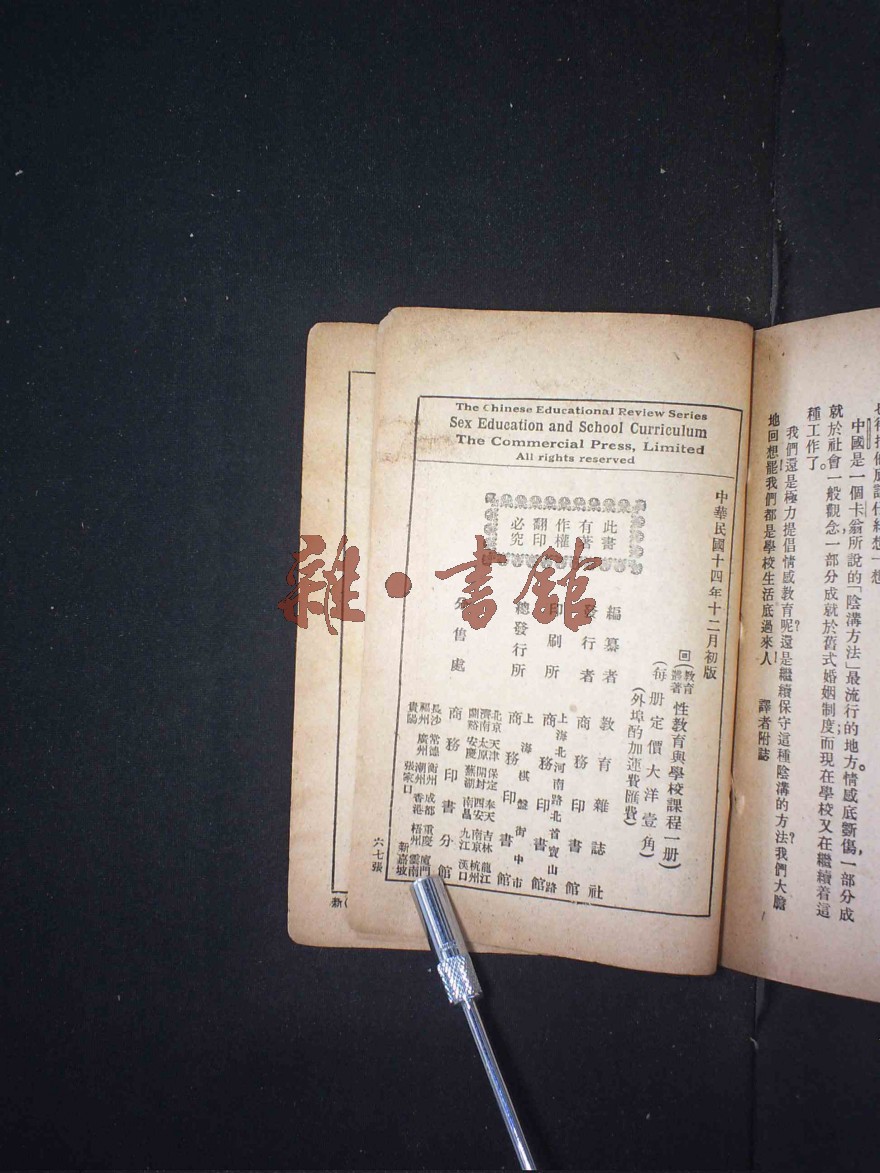 中國是一個卡翁所說的「陰溝方法」最流行的地方。情感底斵傷，一部分成
就於社會一般觀念一部分成就於舊式婚姻制度；而現在學校又在繼續着這
種工作了。
我們還是極力提倡情感教育呢？還是繼續保守這種陰溝的方法？我們大膽
地回想罷！我們都是學校生活底過來人！
譯者附誌
The Chinese Educational Review Series
Sex Education and School Curriculum
The Commercial Press, Limited
All rights reserved
中華民國十四年十二月初版
教育叢著 性教育與學校課程一册
(每册定價大洋壹角)
(外埠酌加運費匯費)
此書
有著
作權
翻印
必究
編纂者 教育雜誌社
發行者 商務印書館
印刷所 上海北河南路北首寶山路
商務印書館
總發行所 上海棋盤街中市
商務印書館
分售處 商務印書分館
北京 天津 保定 奉天 吉林 龍江
濟南 太原 開封 西安 南京 杭州
蘭谿 安慶 蕪湖 南昌 九江 漢口
長沙 常德 衡州 成都 重慶 廈門
福州 廣州 潮州 香港 梧州 雲南
貴陽 張家口 新嘉坡
六七張
雜·書館